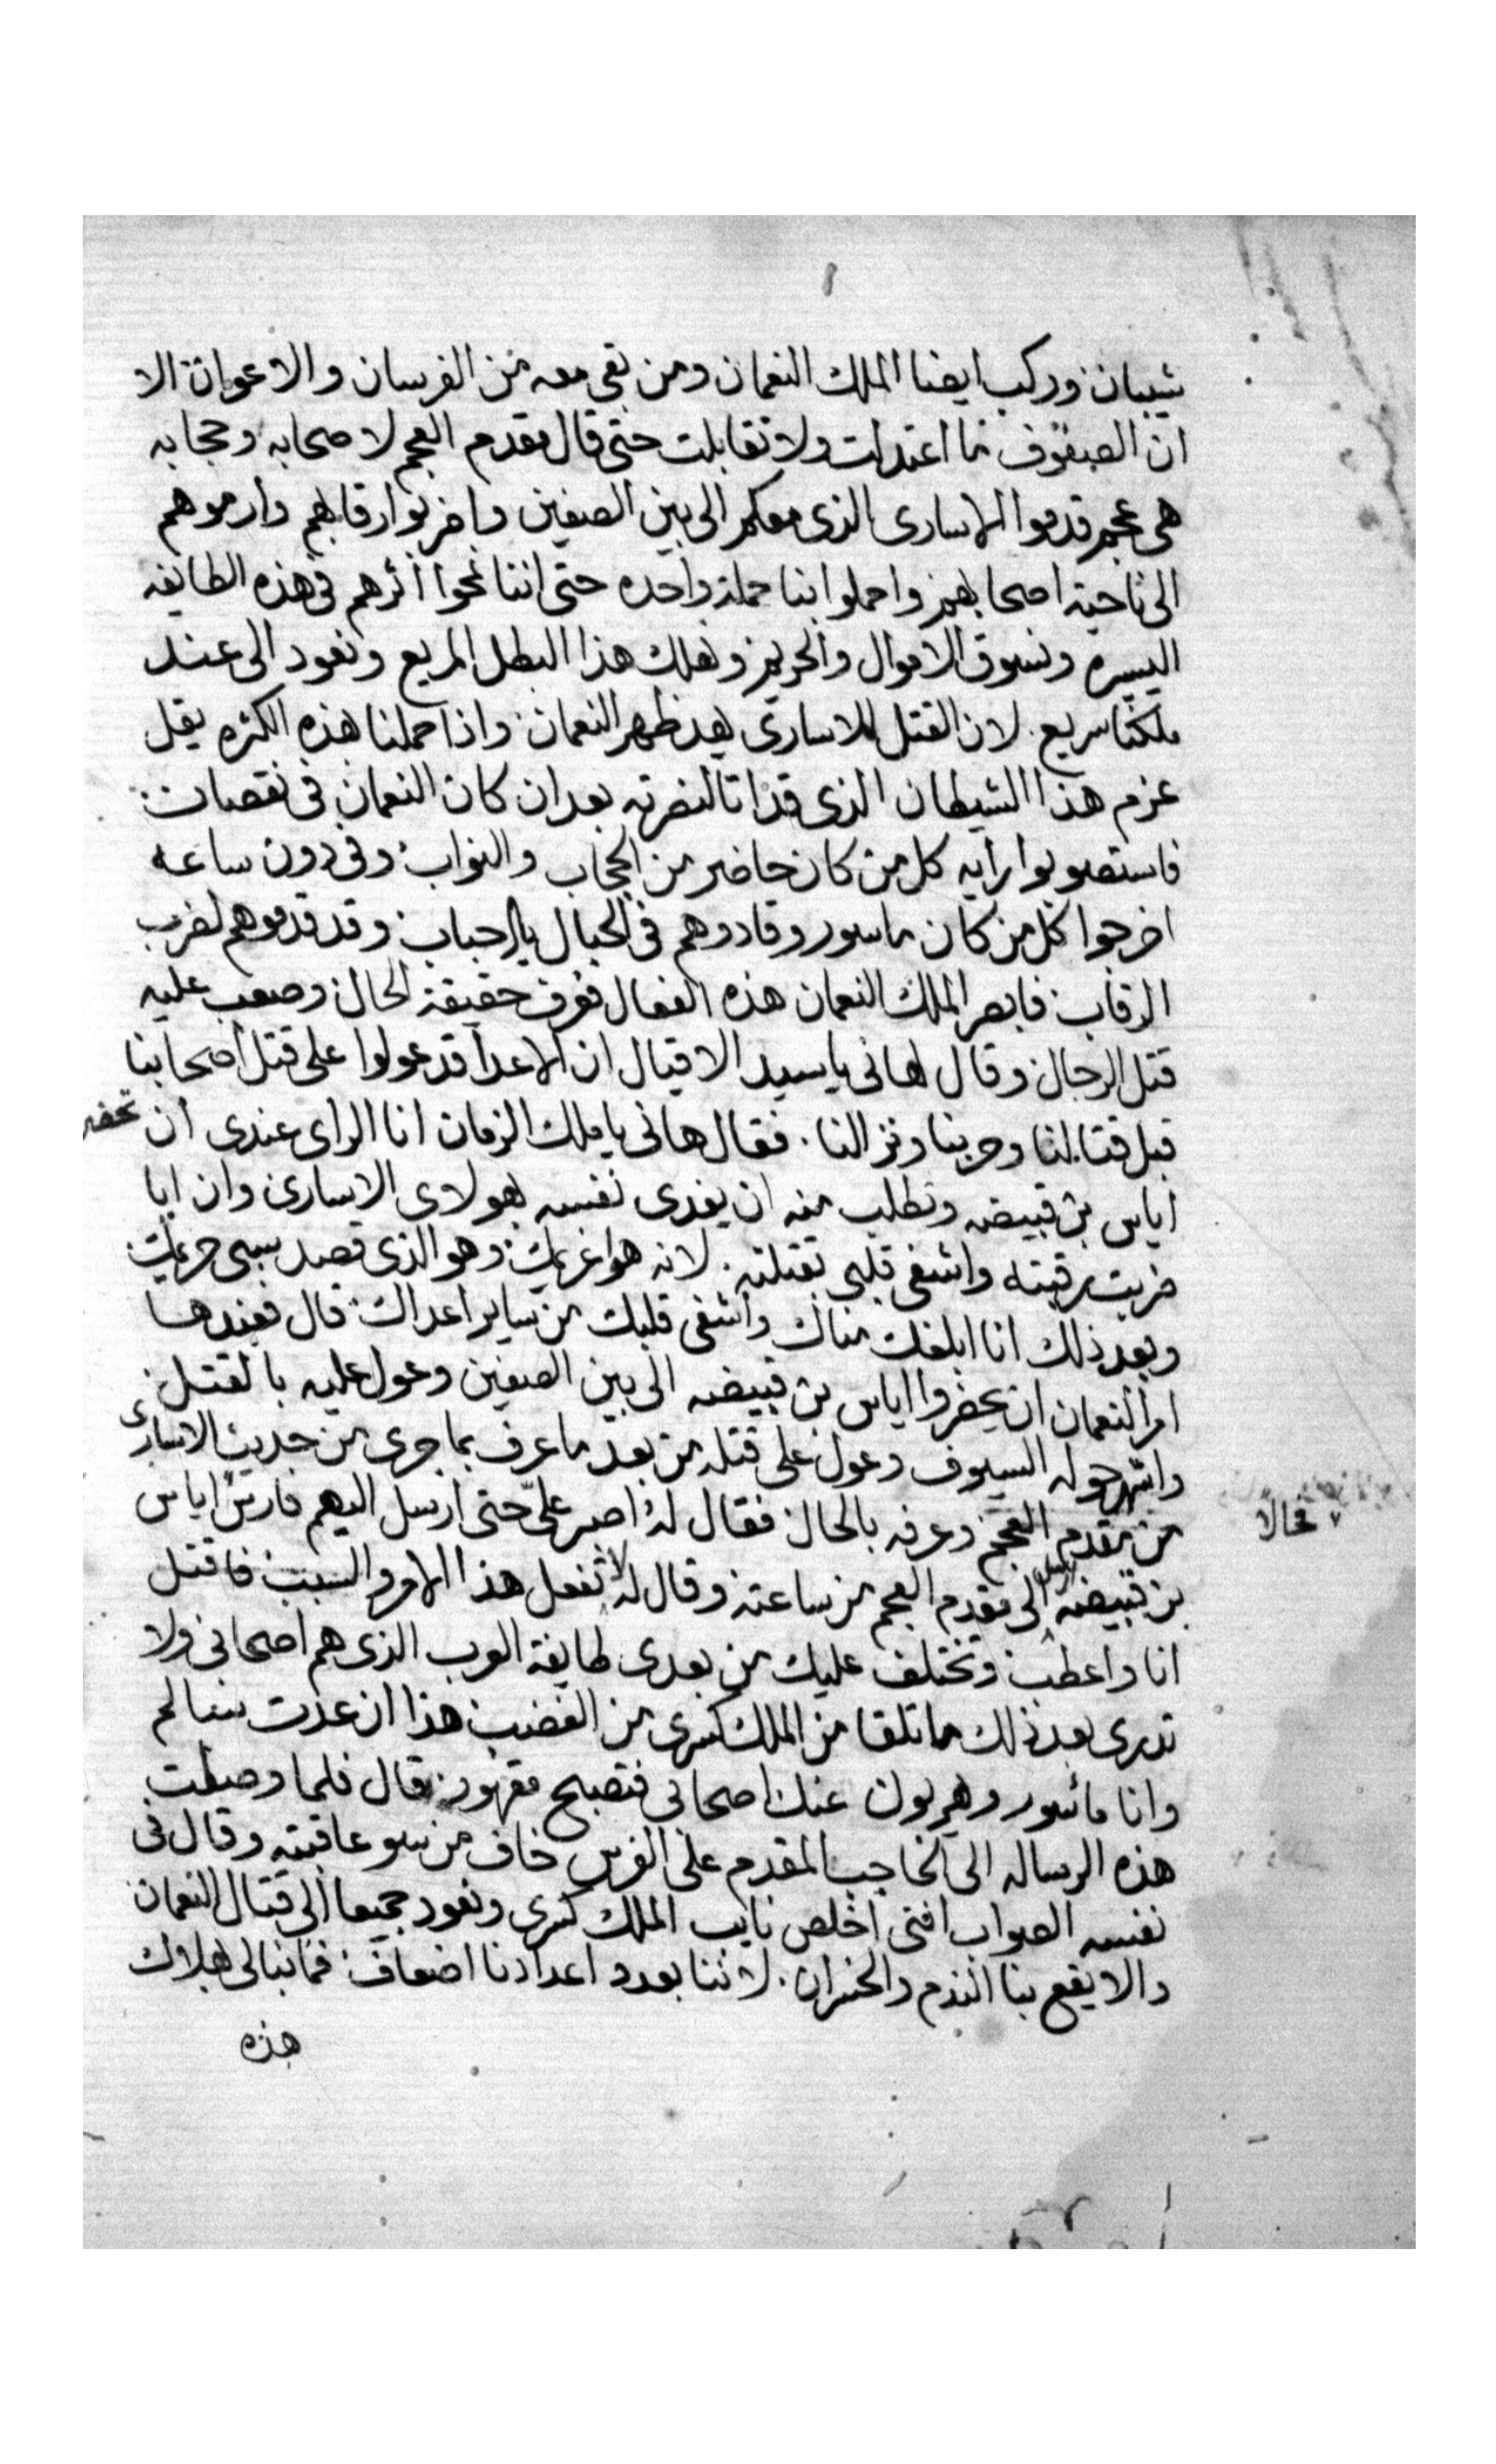 شيبان وركب ايضا الملك النعمان ومن بقى معه من الفرسان والاعوان الا
ان الصفوف ما اعتدلت ولا تقابلت حتى قال مقدم العجم لاصحابه وحجابه
هى عجم قدموا الاسارى الذى معكم الى بين الصفين واضربوا رقابهم وارموهم
الى ناحية اصحابهم واحملوا بنا حملة واحده حتى اننا نمحوا اثرهم فى هذه الطايفه
اليسيره ونسوق الاموال والحريم ونهلك هذا البطل المريع ونعود الى عند
ملكنا سريع. لان القتل للاسارى يهد ظهر النعمان واذا حملنا هذه الكثره يقل
عزم هذا الشيطان الذى قد اتا لنصرته بعد ان كان النعمان فى نقصان
فاستصوبوا رايه كل من كان حاضر من الحجاب والنواب وفى دون ساعه
اخرجوا كل من كان ماسور وقادوهم فى الحبال يا احباب وقد قدموهم لضرب
الرقاب فابصر الملك النعمان هذه الفعال فعرف حقيقة الحال وصعب عليه
قتل الرجال وقال لهانى يا سيد الاقيال ان الاعدا قد عولوا على قتل اصحابنا
قبل قتالنا وحربنا ونزالنا. فقال هانى يا ملك الزمان انا الراى عندى ان تحضر
اياس بن قبيضه وتطلب منه ان يفدى نفسه بهولاى الاسارى وان ابا
ضربت رقبته واشفى قلبى بقتلته. لانه هوا غريمك وهو الذى قصد بسبى حريمك
وبعد ذلك انا ابلغك مناك واشفى قلبك من ساير اعداك قال فعندها
امر النعمان ان يحضروا اياس بن قبيضه الى بين الصفين وعول عليه بالقتل
واشهروله السيوف وعول على قتله من بعد ما عرف بما جرى من حديث الاسارى
من مقدم العجم وعرفه بالحال فقال له اصبر علىّ حتى ارسل اليهم فارس اياس
بن قبيضه الى مقدم العجم من ساعته وقال له لا تفعل هذا الامر والسبب فاقتل
٧ محالا
انا واعطب وتختلف عليك من بعدى طايفة العرب الذى هم اصحابى ولا
تدرى بعد ذلك ما تلقا من الملك كسرى من الغضب هذا ان عدت سالم
وانا مأسور ويهربون عنك اصحابى فتصبح مقهور قال فلما وصلت
هذه الرساله الى الحاجب المقدم على الفرس خاف من سو عاقبته وقال فى
نفسه الصواب اننى اخلص نايب الملك كسرى ونعود جميعا الى قتال النعمان
والا يقع بنا الندم والخسران. لاننا بعدد اعدادنا اضعاف فما نبالى بهلاك
هذه